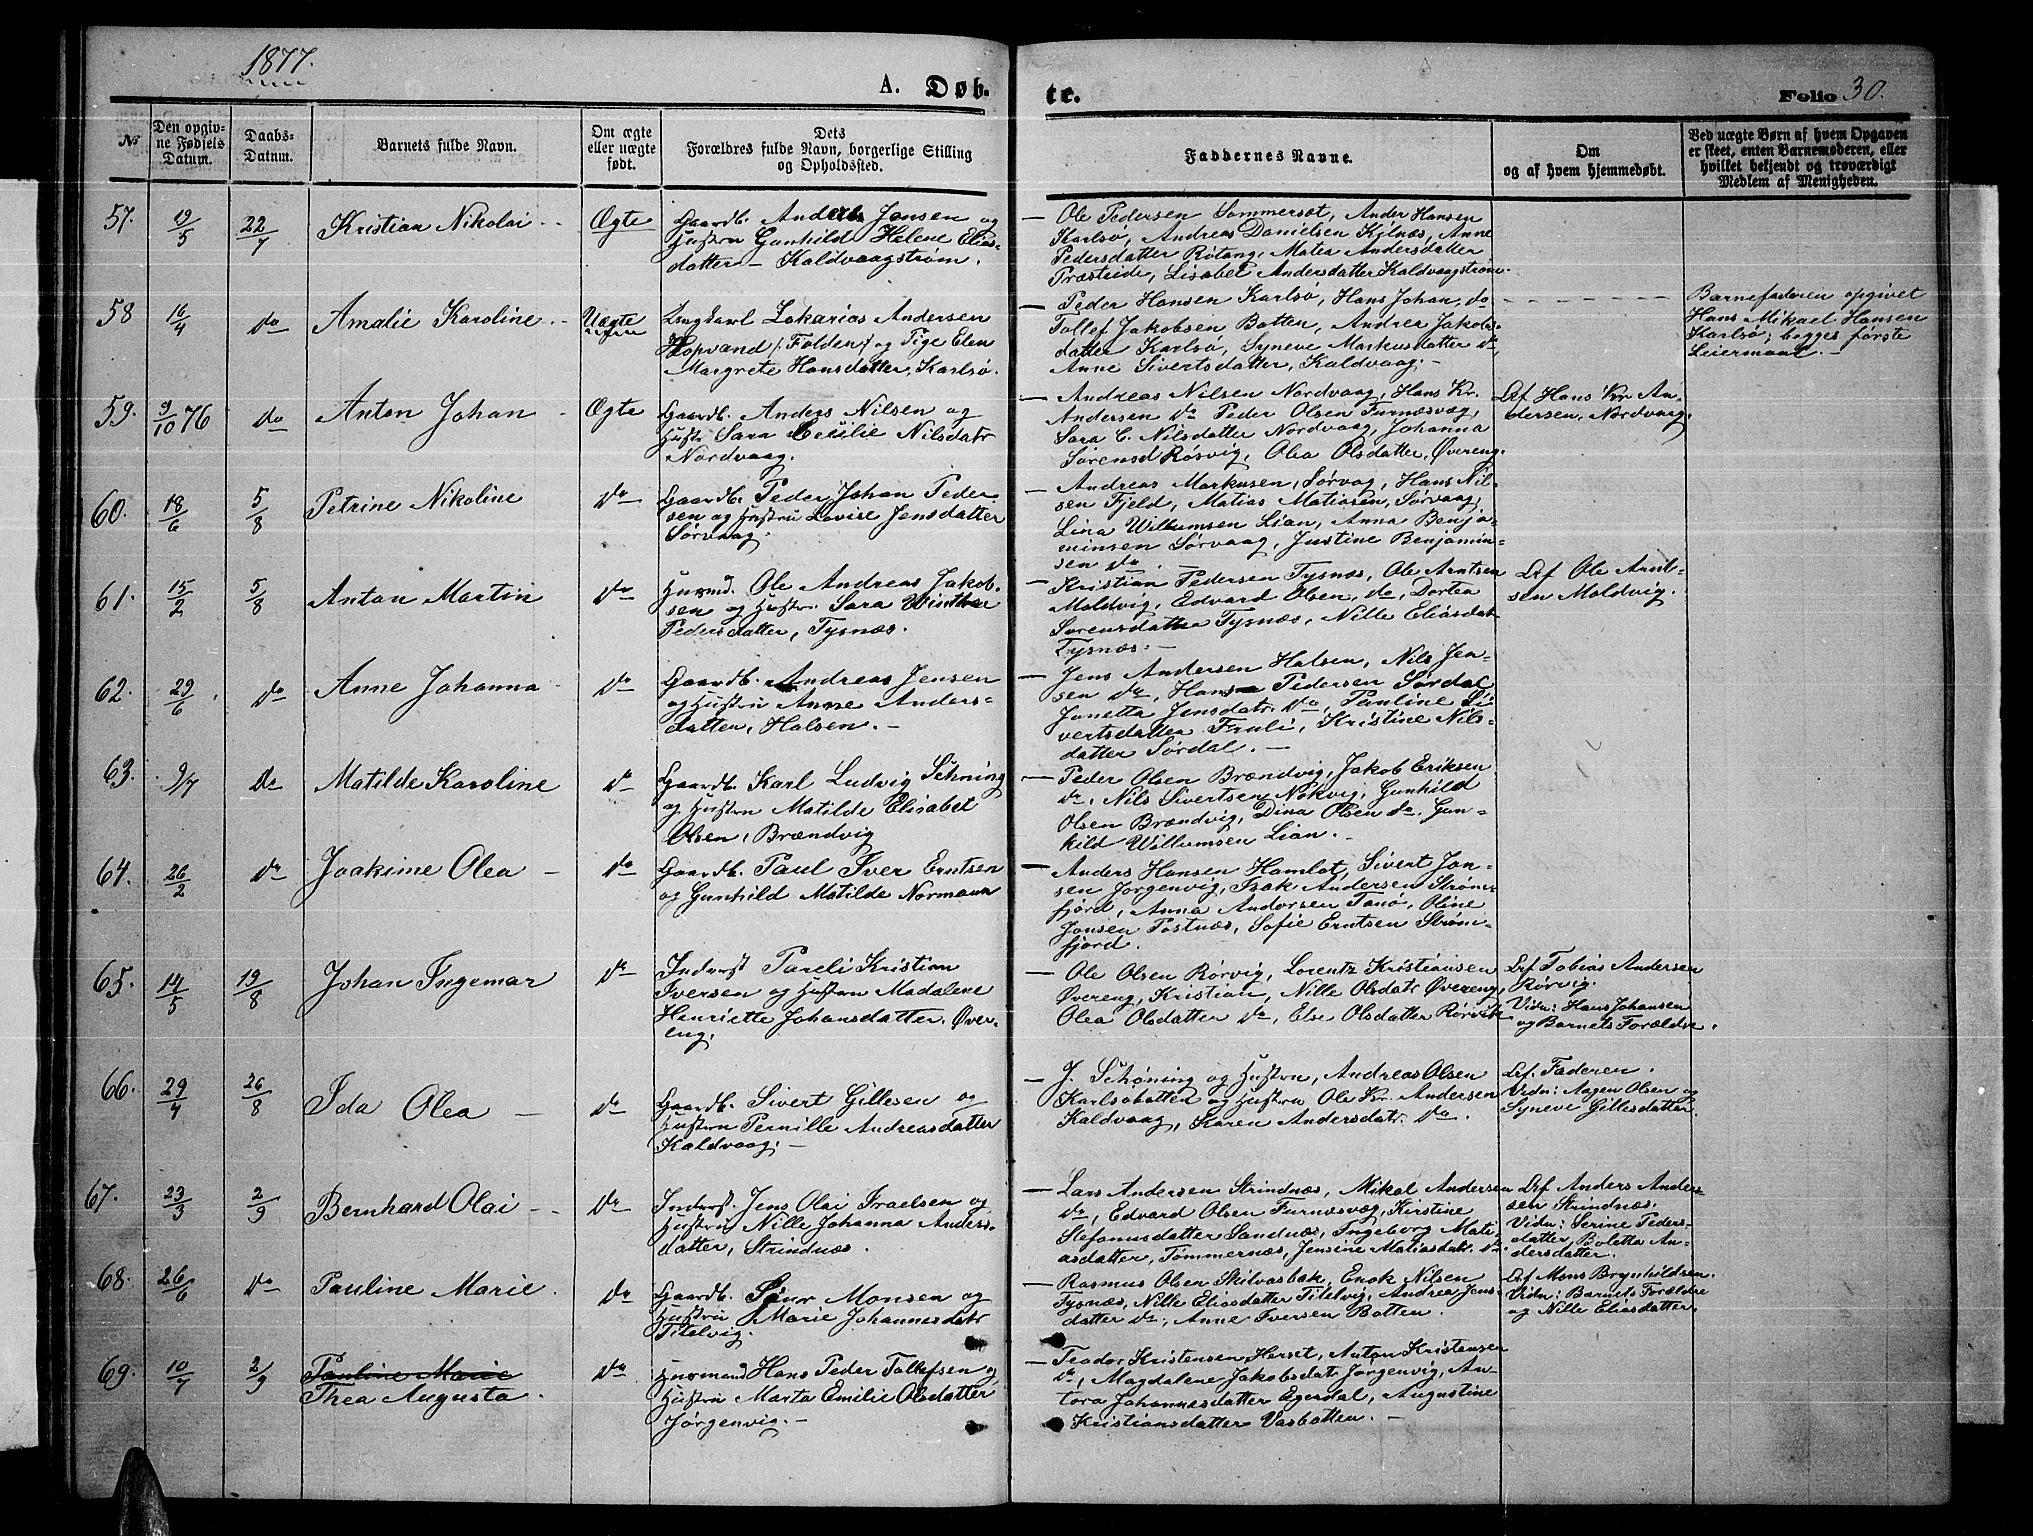 1877.
A. Døb-
te.
Folio 30.
№
Den opgiv-
ne Fødsels
Datum.
Daabs-
Datum.
Barnets fulde Navn.
Om ægte
eller uægte
født.
Dets
Forældres fulde Navn, borgerlige Stilling
og Opholdsted.
Faddernes Navne.
Om
og af hvem hjemmedøbt.
Ved uægte Børn af hvem Opgaven
er skeet, enten Barnemoderen, eller
hvilket bekjendt og troværdigt
Medlem af Menigheden.
57. 19/5 22/7 Kristian Nikolai - - Ægte
Gaardb. Anders Jensen og
Hustru Gunhild Helene Elias-
datter - Kaldvaagstrøm.
- Ole Pedersen Sommerset, Ander Hansen
Karlsø, Andreas Danielsen Kilnæs, Anne
Pedersdatter Røtang, Matea Andersdatter
Præsteide, Lisabet Andersdatter Kaldvaagstrøm.
58 16/4 do Amalie Karoline. - Uægte
Ungkarl Zakarias Andersen
Hopvand /: Folden / og Pige Elen
Margrete Hansdatter, Karlsø.
- Peder Hansen Karlsø, Hans Johan, do
Tollef Jakobsen Botten, Andrea Jakobs-
datter Karlsø, Syneve Markusdatter do,
Anne Sivertsdatter, Kaldvaag -
Barnefaderen opgivet
Hans Mikael Hansen
Karlsø; begges første
Leiermaal. -
59. 9/10 76 do Anton Johan - Ægte
Gaardb. Anders Nilsen og
Hustr Sara Cecilie Nilsdatr
Nordvaag.
- Andreas Nilsen Nordvaag, Hans Kr.
Andersen do Peder Olsen Furnæsvæg,
Sara C. Nilsdatter Nordvaag, Johanna
Sørensd Røsvig, Olea Olsdatter, Øvereng.
Hans Kr An-
dersen, Nordvaag.
60. 18/6 5/8 Petrine Nikoline do
Gaardb. Peder Johan Peder-
sen og Hustru Lovise Jensdatter
Sørvaag.
- Andreas Markusen, Sørvag, Hans Nil-
sen Fjeld, Matias Matiasen, Sørvaag,
Lina Willumsen Lian, Anna Benja-
minsen Sørvaag, Justine Benjamin-
sen do.
61. 15/2 5/8 Anton Martin do
Husmd. Ole Andreas Jakob-
sen og Hustr. Sara Winther
Pedersdatter, Tysnæs.
- Kristian Pedersen Tysnæs, Ole Arntsen
Moldvig, Edvard Olsen, do, Dortea
Sørensdatter Tysnæs, Nille Eliasdat
Tysnæs. -
Ole Arnt-
sen Moldvig.
62. 29/6 do Anne Johanna - do
Gaardb. Andreas Jensen
og Hustru Anne Anders-
datter, Halsen. -
- Jens Andersen Halsen, Nils Jen-
sen do, Hans Pedersen Sørdal
Janetta Jensdatr. do, Pauline Si-
vertsdatter Fruli, Kristine Nils-
datter Sørdal. -
63. 9/7 do Matilde Karoline do
Gaardb. Karl Ludvig Schning
og Hustru Matilde Elisabet
Olsen, Brændvig
- Peder Olsen Brændvig, Jakob Eriksen
do, Nils Sivertsen Nokvig, Gunhild
Olsen Brændvig, Dina Olsen do. Gun-
hild Willumsen Lian. -
64. 26/2 do Joakime Olea - do
Gaardb. Paul Iver Erntsen
og Gunhild Matilde Normann
- Anders Hansen Hamlot, Sivert Jan-
sen Jørgenvig, Isak Andersen Strøm-
fjord, Anna Andersen Tanø, Oline
Jansen Tostnæs, Sofie Erntsen Strøm-
fjord.
65. 14/5 19/8 Johan Ingemar do
Inderst Pareli Kristian
Iversen og Hustru Madalene
Henriette Johansdatter. Øver-
eng.
- Ole Olsen Rørvig, Lorentz Kristiansen
Øvereng, Kristian, Nille Olsdatr Øvereng,
Olea Olsdatter do, Else Olsdatter Rørvik
Tobias Andersen
Rørvig.
Vidn: Hans Johansen
og Barnets Forældre.
66. 29/4 26/8 Ida Olea - do
Gaardb. Sivert Gillesen og
Hustru Pernille Andreasdatter
Kaldvaag. -
- J. Schøning og Hustru, Andreas Olsen
Karlsøbotten og Hustru Ole Kr. Andersen
Kaldvaag, Karen Andersdatr. do.
Faderen.
Vidn: Aagen Olsen og
Syneve Gillesdatter.
67. 23/3 2/9 Bernhard Olai - - do
Inderst. Jens Olai Israelsen og
Hustru Nille Johanna Anders-
datter, Strindnæs.
- Lars Andersen Strindnæs, Mikal Andersen
do, Edvard Olsen Furnæsvæg, Kirstine
Stefanusdatter Sandnæs, Ingeborg Mati-
asdatter, Tømmernæs, Jensine Matiasdatr. do.
Anders Ander-
sen Strindnæs.
Vidn: Serine Peders-
datter, Boletta An-
dersdatter.
68. 26/6 do Pauline Marie. do
Gaardb. Sjur Monsen og
Hustru Marie Johannesdatr
Titelvig.
- Rasmus Olsen Skilvasbak, Enok Nilsen
Tysnæs, Nille Eliasdatter Titelvig, Andrea Jens-
datter do., Anne Iversen Botten.
Mons Brynhildsen.
Vidn: Barnets Forældre
og Nille Eliasdatter.
69. 10/7 2/9 Pauline Marie do
Thea Augusta.
Husmand Hans Peder Tollefsen og
Hustru Marta Emilie Olsdatter
Jørgenvig. -
- Teodor Kristensen Herset, Anton Kristensen
do, Magdalene Jakobsdatr Jørgenvig, An-
tora Johannesdatter Egerdal, Augustine
Kristiansdatter Vasbotten. -